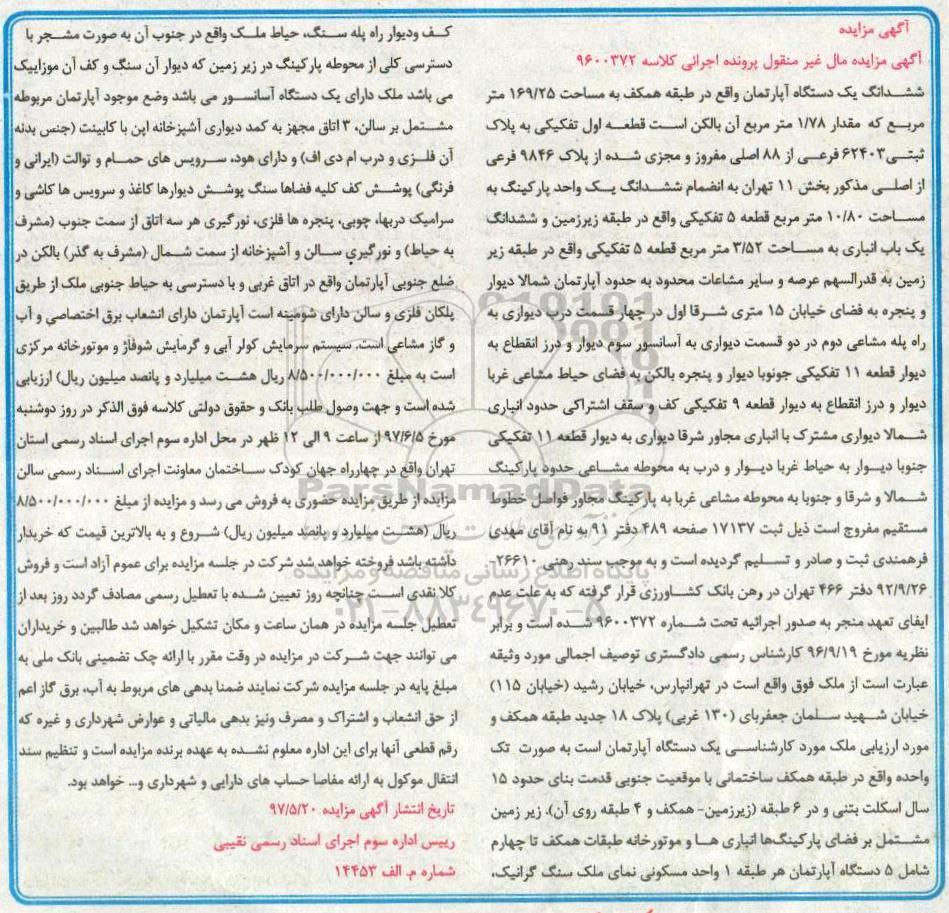 آگهی مزایده
آگهی مزایده مال غیر منقول پرونده اجرائی کلاسه ۹۶۰۰۳۷۲
ششدانگ یک دستگاه آپارتمان واقع در طبقه همکف به مساحت ۱۶۹/۲۵ متر
مربع که مقدار ۱/۷۸ متر مربع آن بالکن است قطعه اول تفکیکی به پلاک
ثبتی۶۲۴۰۳ فرعی از ۸۸ اصلی مفروز و مجزی شده از پلاک ۹۸۴۶ فرعی
از اصلی مذکور بخش ۱۱ تهران به انضمام ششدانگ یک واحد پارکینگ به
مساحت ۱۰/۸۰ متر مربع قطعه ۵ تفکیکی واقع در طبقه زیرزمین و ششدانگ
یک باب انباری به مساحت ۳/۵۲ متر مربع قطعه ۵ تفکیکی واقع در طبقه زیر
زمین به قدرالسهم عرصه و سایر مشاعات محدود به حدود آپارتمان شمالا دیوار
و پنجره به فضای خیابان ۱۵ متری شرقا اول در چهار قسمت درب دیواری به
راه پله مشاعی دوم در دو قسمت دیواری به آسانسور سوم دیوار و درز انقطاع به
دیوار قطعه ۱۱ تفکیکی جنوبا دیوار و پنجره بالکن به فضای حیاط مشاعی غربا
دیوار و درز انقطاع به دیوار قطعه ۹ تفکیکی کف و سقف اشتراکی حدود انباری
شمالا دیواری مشترک با انباری مجاور شرقا دیواری به دیوار قطعه ۱۱ تفکیکی
جنوبا دیوار به حیاط غربا دیوار و درب به محوطه مشاعی حدود پارکینگ
شمالا و شرقا و جنوبا به محوطه مشاعی غربا به پارکینگ مجاور فواصل خطوط
مستقیم مفروج است ذیل ثبت ۱۷۱۳۷ صفحه ۴۸۹ دفتر ۹۱ به نام آقای مهدی
فرهمندی ثبت و صادر و تسلیم گردیده است و به موجب سند رهنی ۲۶۶۱۰-
۹۲/۹/۲۶ دفتر ۴۶۶ تهران در رهن بانک کشاورزی قرار گرفته که به علت عدم
ایفای تعهد منجر به صدور اجرائیه تحت شماره ۹۶۰۰۳۷۲ شده است و برابر
نظریه مورخ ۹۶/۹/۱۹ کارشناس رسمی دادگستری توصیف اجمالی مورد وثیقه
عبارت است از ملک فوق واقع است در تهرانپارس، خیابان رشید (خیابان ۱۱۵)
خیابان شهید سلمان جعفریای (۱۳۰ غربی) پلاک ۱۸ جدید طبقه همکف و
مورد ارزیابی ملک مورد کارشناسی یک دستگاه آپارتمان است به صورت تک
واحده واقع در طبقه همکف ساختمانی با موقعیت جنوبی قدمت بنای حدود ۱۵
سال اسکلت بتنی و در ۶ طبقه (زیرزمین- همکف و ۴ طبقه روی آن). زیر زمین
مشتمل بر فضای پارکینگ‌ها انباری ها و موتورخانه طبقات همکف تا چهارم
شامل ۵ دستگاه آپارتمان هر طبقه ۱ واحد مسکونی نمای ملک سنگ گرانیک،
کف ودیوار راه پله سنگ، حیاط ملک واقع در جنوب آن به صورت مشجر با
دسترسی کلی از محوطه پارکینگ در زیر زمین که دیوار آن سنگ و کف آن موزاییک
می باشد ملک دارای یک دستگاه آسانسور می باشد وضع موجود آپارتمان مربوطه
مشتمل بر سالن، ۳ اتاق مجهز به کمد دیواری آشپزخانه اپن با کابینت (جنس بدنه
آن فلزی و درب ام دی اف) و دارای هود، سرویس های حمام و توالت (ایرانی و
فرنگی) پوشش کف کلیه فضاها سنگ پوشش دیوارها کاغذ و سرویس ها کاشی و
سرامیک دربها، چوبی، پنجره ها فلزی، نورگیری هر سه اتاق از سمت جنوب (مشرف
به حیاط) و نورگیری سالن و آشپزخانه از سمت شمال (مشرف به گذر) بالکن در
ضلع جنوبی آپارتمان واقع در اتاق غربی و با دسترسی به حیاط جنوبی ملک از طریق
پلکان فلزی و سالن دارای شومینه است آپارتمان دارای انشعاب برق اختصاصی و آب
و گاز مشاعی است. سیستم سرمایش کولر آبی و گرمایش شوفاژ و موتورخانه مرکزی
است به مبلغ ۸/۵۰۰/۰۰۰/۰۰۰ ریال هشت میلیارد و پانصد میلیون ریال) ارزیابی
شده است و جهت وصول طلب بانک و حقوق دولتی کلاسه فوق الذکر در روز دوشنبه
مورخ ۹۷/۶/۵ از ساعت ۹ الی ۱۲ ظهر در محل اداره سوم اجرای اسناد رسمی استان
تهران واقع در چهارراه جهان کودک ساختمان معاونت اجرای اسناد رسمی سالن
مزایده از طریق مزایده حضوری به فروش می رسد و مزایده از مبلغ ۸/۵۰۰/۰۰۰/۰۰۰
ریال (هشت میلیارد و پانصد میلیون ریال) شروع و به بالاترین قیمت که خریدار
داشته باشد فروخته خواهد شد شرکت در جلسه مزایده برای عموم آزاد است و فروش
کلا نقدی است چنانچه روز تعیین شده با تعطیل رسمی مصادف گردد روز بعد از
تعطیل جلسه مزایده در همان ساعت و مکان تشکیل خواهد شد طالبین و خریداران
می توانند جهت شرکت در مزایده در وقت مقرر با ارائه چک تضمینی بانک ملی به
مبلغ پایه در جلسه مزایده شرکت نمایند ضمنا بدهی های مربوط به آب، برق گاز اعم
از حق انشعاب و اشتراک و مصرف ونیز بدهی مالیاتی و عوارض شهرداری و غیره که
رقم قطعی آنها برای این اداره معلوم نشده به عهده برنده مزایده است و تنظیم سند
انتقال موکول به ارائه مفاصا حساب های دارایی و شهرداری و... خواهد بود.
تاریخ انتشار آگهی مزایده ۹۷/۵/۲۰
رییس اداره سوم اجرای اسناد رسمی نقیبی
شماره م. الف ۱۴۴۵۳
ParsNamadData
پایگاه اطلاع رسانی مناقصه و مزایده
۰۲۱-۸۸۳۴۹۶۷۰-۸